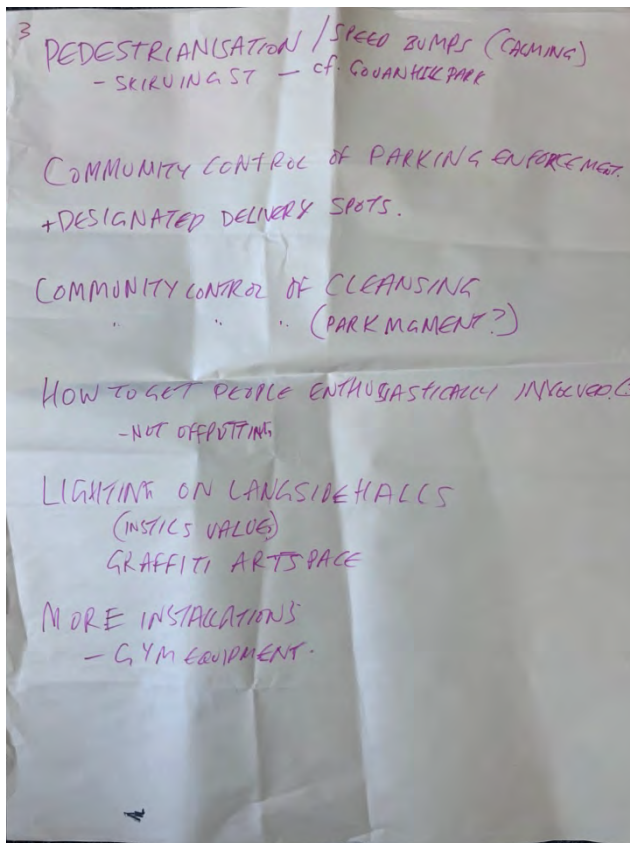 3
PEDESTRIANISATION / SPEED BUMPS (CALMING)
- SKIRVING ST - cf. GOVANHILL PARK
COMMUNITY CONTROL OF PARKING ENFORCEMENT.
+ DESIGNATED DELIVERY SPOTS.
COMMUNITY CONTROL OF CLEANSING
" " " (PARK MGMENT?)
HOW TO GET PEOPLE ENTHUSIASTICALLY INVOLVED.
- NOT OFFPUTTING
LIGHTING ON LANGSIDE HALLS
(INSTILS VALUE)
GRAFFITI ARTSPACE
MORE INSTALLATIONS
- GYM EQUIPMENT.